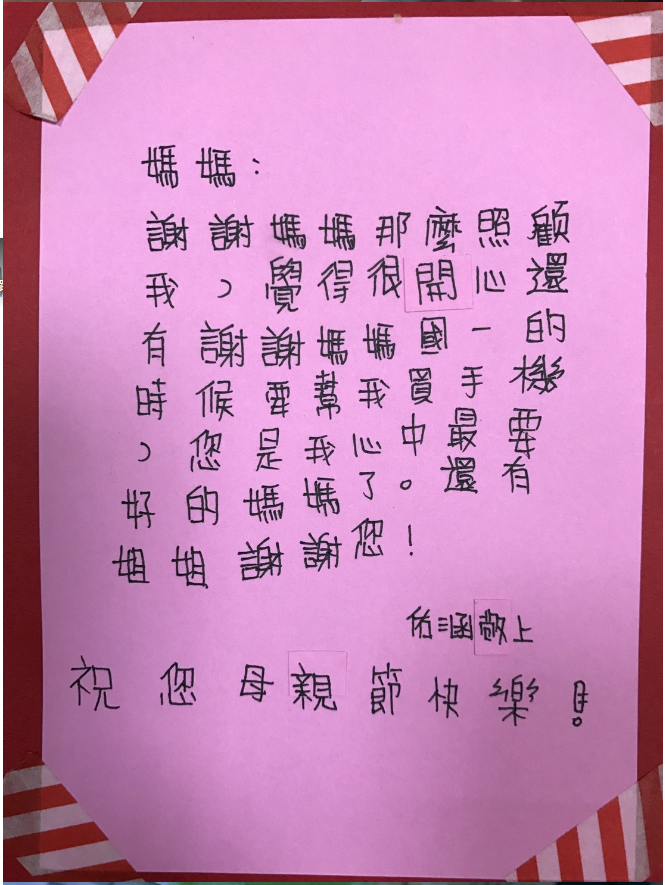 媽媽：
謝謝媽媽那麼照顧
我，覺得很開心還
有謝謝媽媽國一的
時候要幫我買手機
，您是我心中最要
好的媽媽了。還有
姐姐謝謝您！
佑涵敬上
祝您母親節快樂！